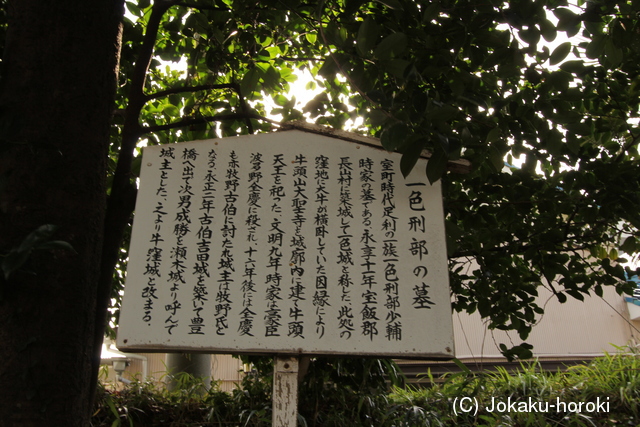 一色刑部の墓
室町時代足利の一族一色刑部少輔
時家の墓である。永享十一年宝飯郡
長山村に築城して一色城と称した。此処の
窪地に大牛が横臥していた因縁により
牛頭山大聖寺を城廓内に建て牛頭
天王を祀った。文明九年時家は豪臣
波多野全慶に殺され、十七年後には全慶
も亦牧野古伯に討たれ城主は牧野氏と
なる。永正二年古伯吉田城を築いて豊
橋へ出て次男成勝を瀬木城より呼んで
城主とした。之より牛窪城と改まる。
(C) Jokaku-horoki